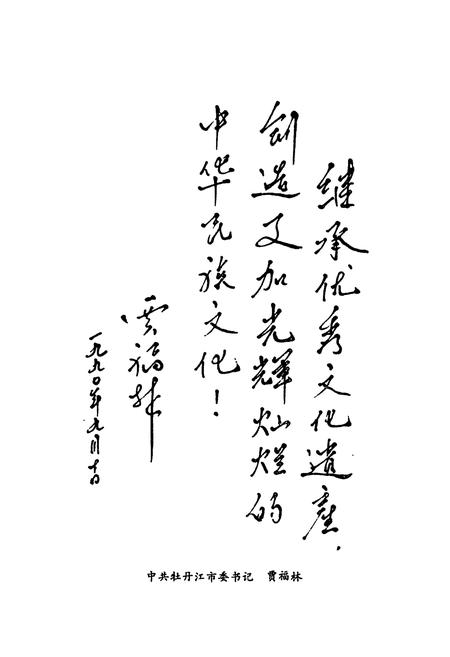 继承优秀文化遗产，
创造更加光辉灿烂的
中华民族文化！
贾福林
一九九〇年九月十日
中共牡丹江市委书记　贾福林